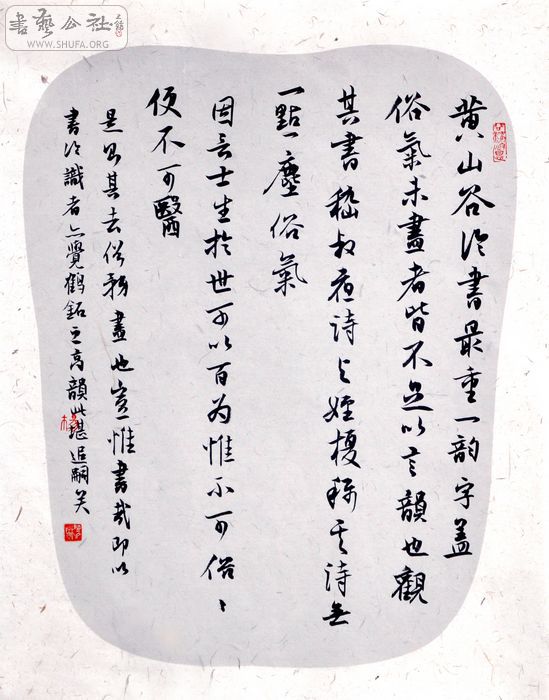 書藝公社
WWW.SHUFA.ORG
黄山谷论書最重一韵字盖
俗氣未盡者皆不足以言韻也觀
其書嵇叔夜詩与姪榎称其詩無
一點塵俗氣
因言士生於世可以百为惟不可俗〻
便不可醫
是則其去俗務盡也豈惟書哉即以
書论識者亦覺鶴銘之高韻此堪追嗣矣